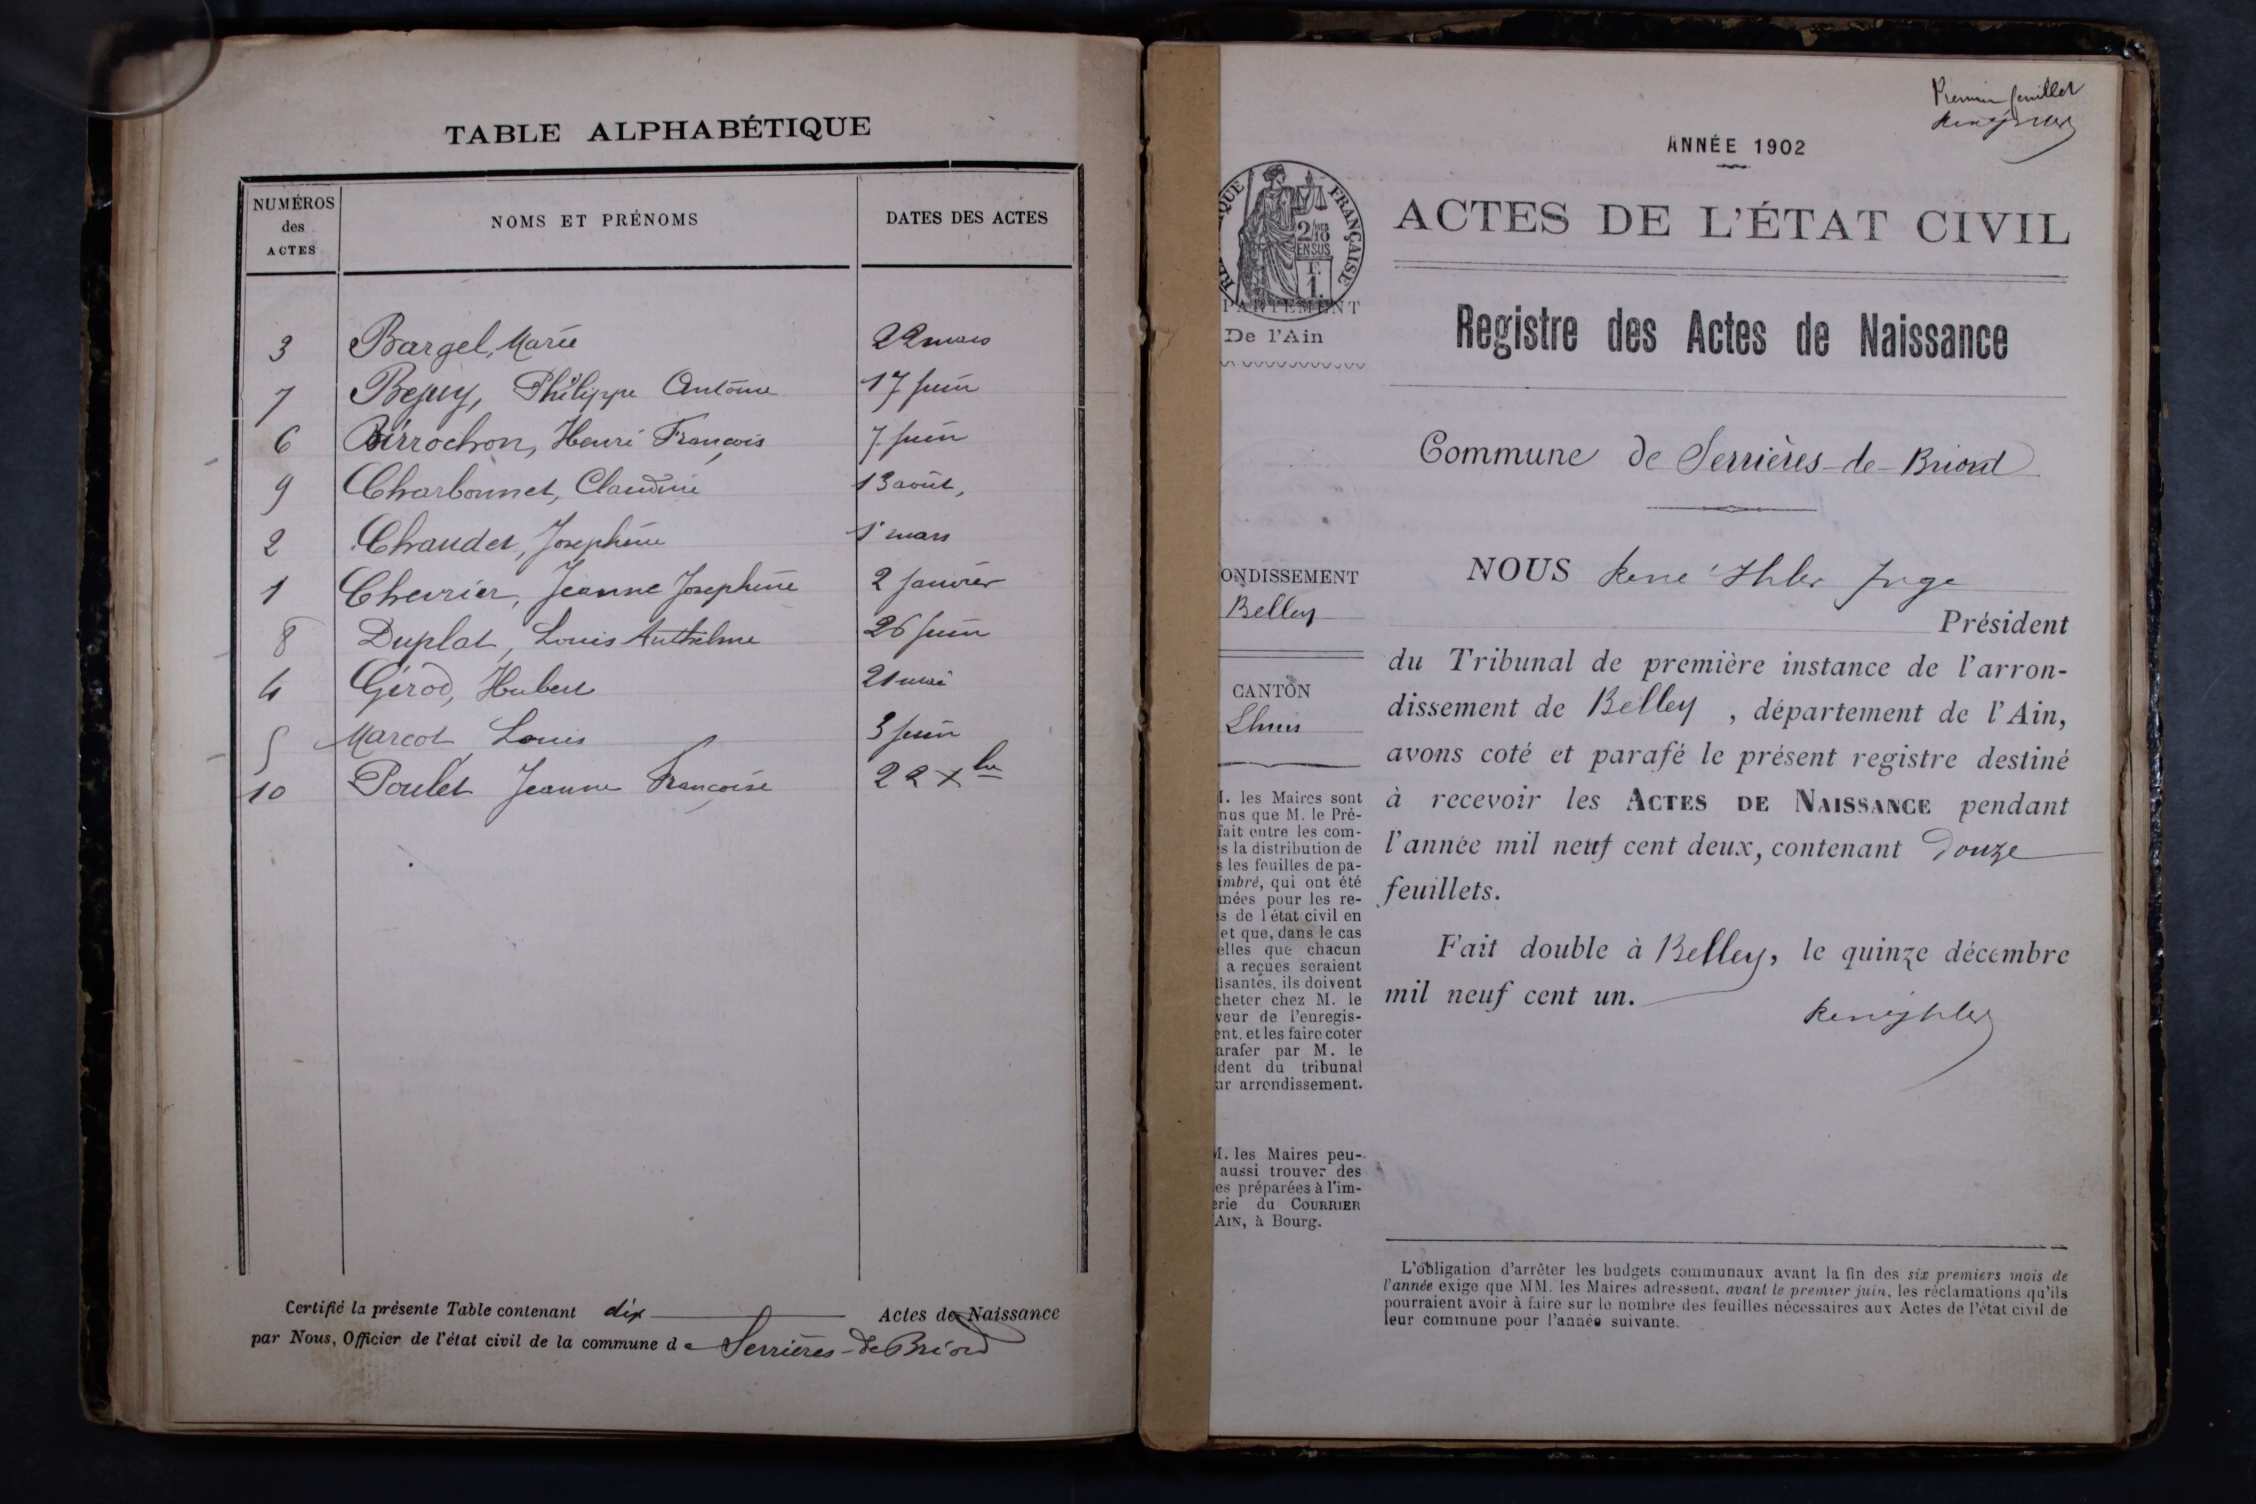 TABLE ALPHABÉTIQUE
NUMÉROS
des
ACTES
NOMS ET PRÉNOMS
DATES DES ACTES
3 Bargel, Marie 22 mars
7 Bejuy, Philippe Antoine 17 juin
6 Birrochon, Henri François 7 juin
9 Charbonnet, Claudine 13 août,
2 Chaudet, Josephine 1r mars
1 Chevrier, Jeanne Josephine 2 janvier
8 Duplat, Louis Anthelme 26 juin
4 Gérod, Hubert 21 mai
5 Marcot Louis 3 juin
10 Poulet Jeanne Françoise 22 Xbre
Certifié la présente Table contenant dix Actes de Naissance
par Nous, Officier de l'état civil de la commune de Serrières-de Briord
Premier feuillet
ANNÉE 1902
ACTES DE L'ÉTAT CIVIL
QUE FRANÇAISE
2/10
EN SUS
1
PARTEMENT
De l'Ain
Registre des Actes de Naissance
Commune de Serrières-de-Briord
ONDISSEMENT
Belley
CANTON
Lhuis
NOUS René Ihler Juge
Président
du Tribunal de première instance de l'arron-
dissement de Belley, département de l'Ain,
avons coté et parafé le présent registre destiné
à recevoir les ACTES DE NAISSANCE pendant
l'année mil neuf cent deux, contenant Douze
feuillets.
Fait double à Belley, le quinze décembre
mil neuf cent un.
René Ihler
M. les Maires sont
nus que M. le Pré-
fait entre les com-
s la distribution de
s les feuilles de pa-
imbré, qui ont été
mées pour les re-
s de l'état civil en
et que, dans le cas
elles que chacun
a reçues seraient
lisantes, ils doivent
cheter chez M. le
veur de l'enregis-
ent, et les faire coter
arafer par M. le
dent du tribunal
ur arrondissement.
M. les Maires peu-
aussi trouver des
es préparées à l'im-
erie du COURRIER
AIN, à Bourg.
L'obligation d'arrêter les budgets communaux avant la fin des six premiers mois de
l'année exige que MM. les Maires adressent, avant le premier juin, les réclamations qu'ils
pourraient avoir à faire sur le nombre des feuilles nécessaires aux Actes de l'état civil de
leur commune pour l'année suivante.